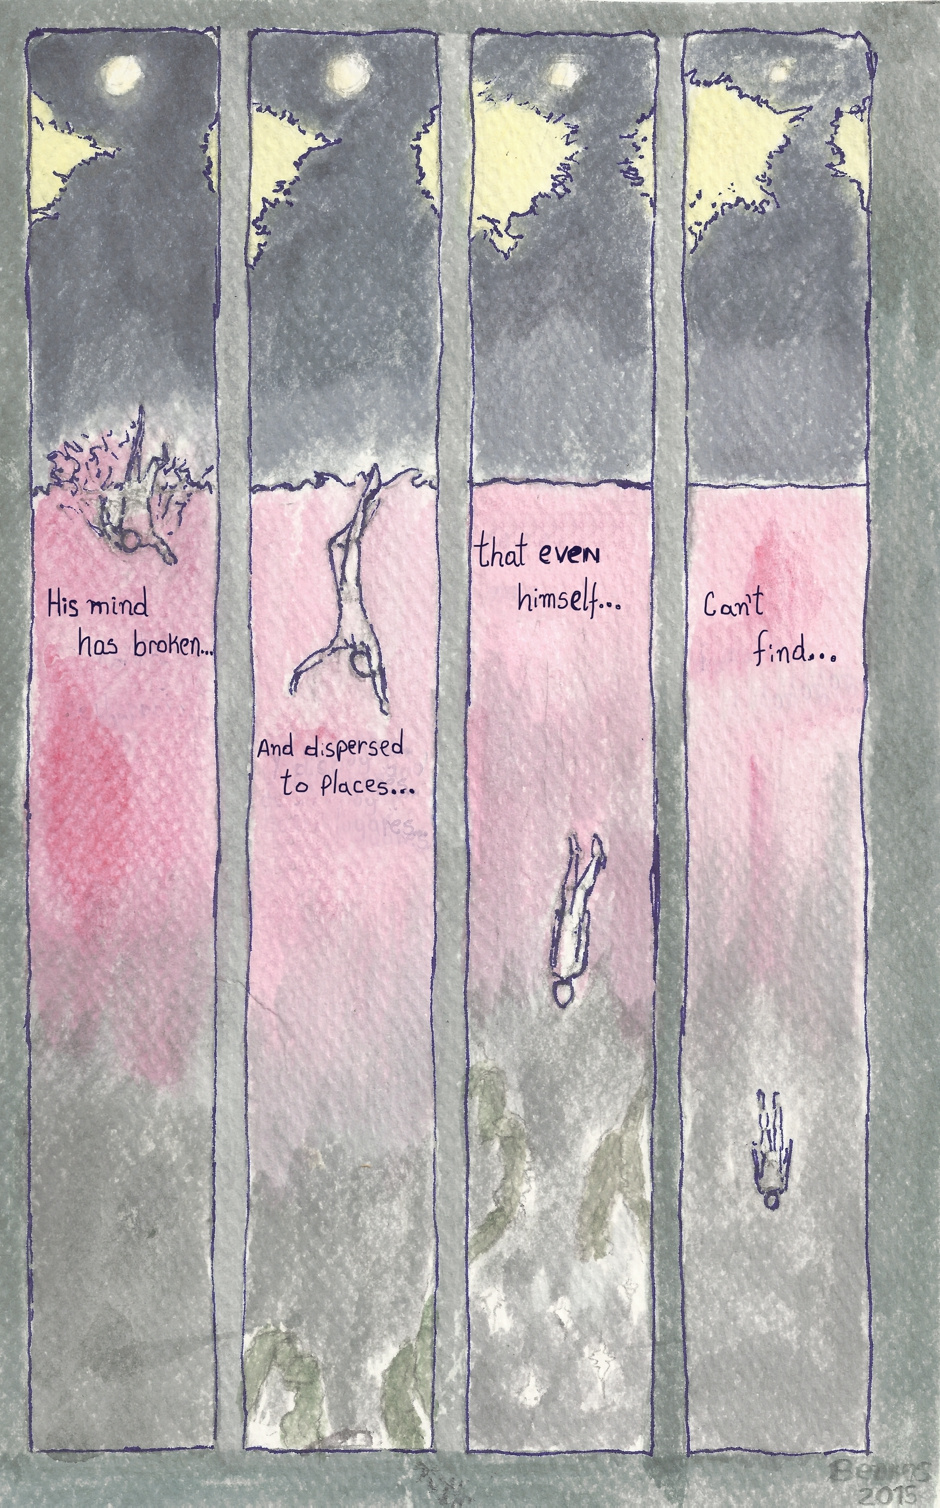 His mind
has broken...
And dispersed
to places...
that even
himself...
Can't
find...
2015